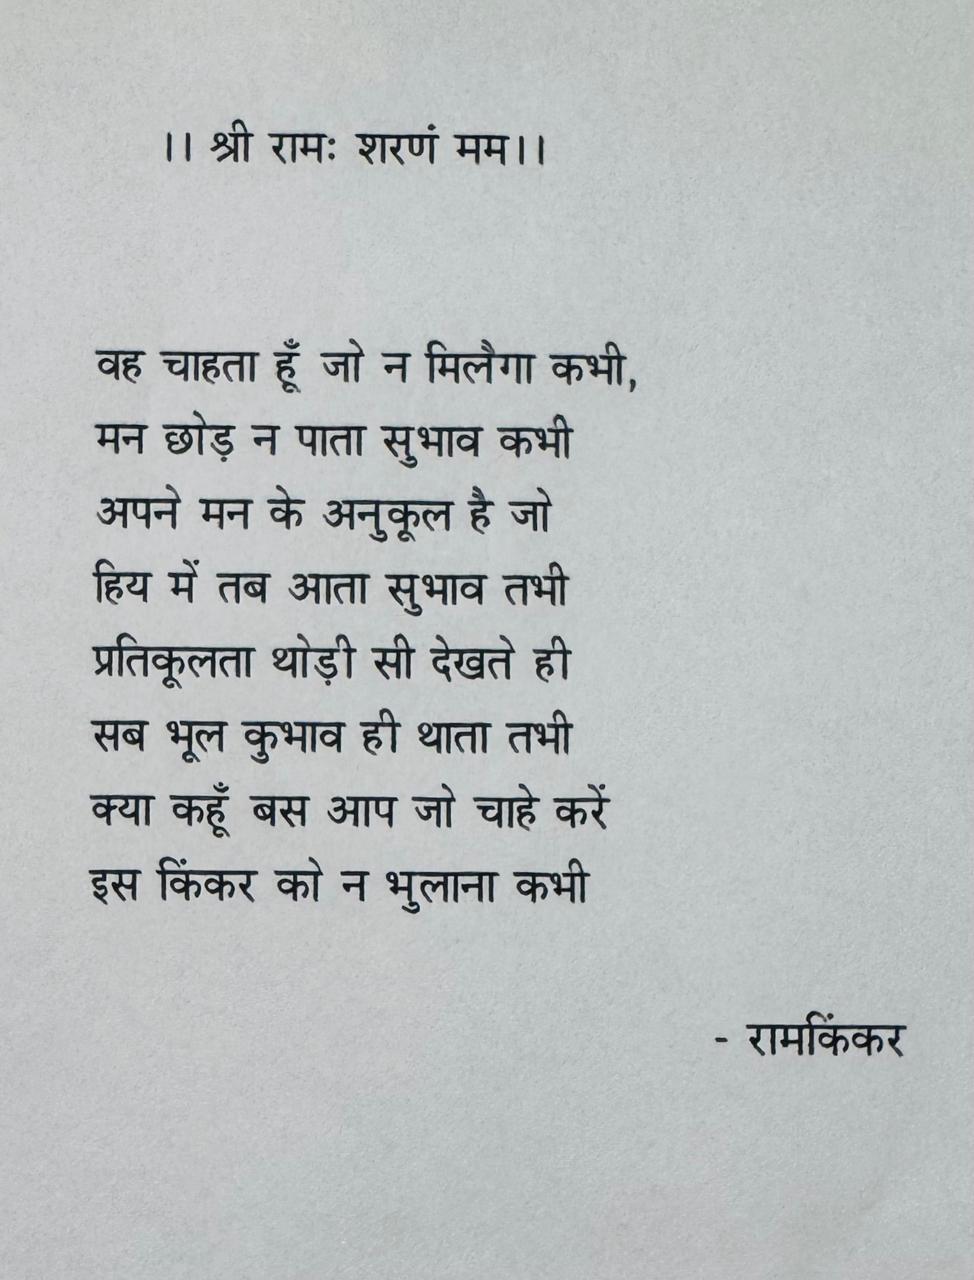 ।। श्री रामः शरणं मम।।
वह चाहता हूँ जो न मिलैगा कभी,
मन छोड़ न पाता सुभाव कभी
अपने मन के अनुकूल है जो
हिय में तब आता सुभाव तभी
प्रतिकूलता थोड़ी सी देखते ही
सब भूल कुभाव ही थाता तभी
क्या कहूँ बस आप जो चाहे करें
इस किंकर को न भुलाना कभी
- रामकिंकर